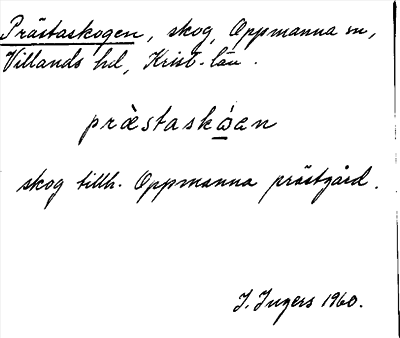 Prästaskogen, skog, Oppmanna sn,
Villands hd, Krist. län.
præ̀staskɷ́ᶕen
skog tillh. Oppmanna prästgård.
I. Ingers 1960.